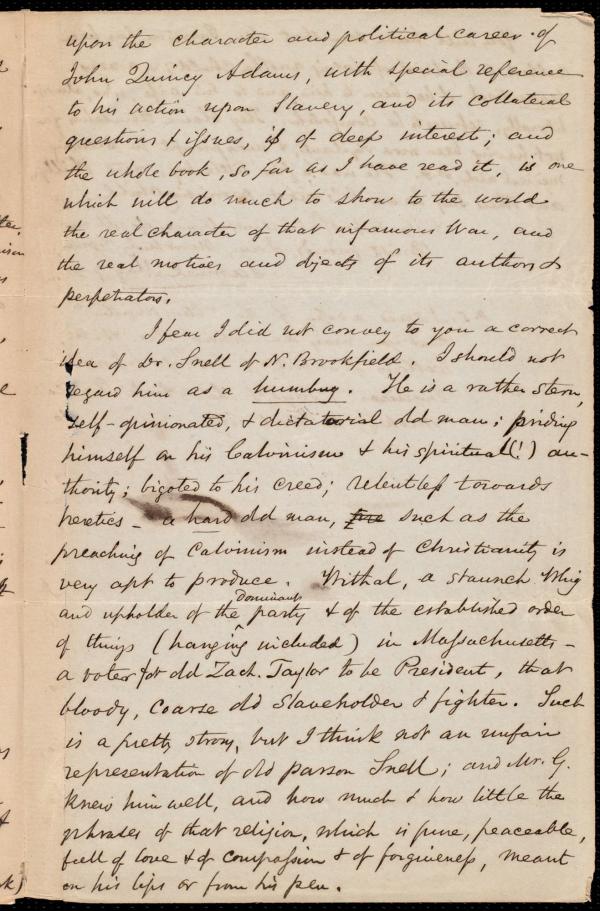 upon the character and political career of
John Quincy Adams, with special reference
to his action upon Slavery, and its collateral
questions & issues, is of deep interest; and
the whole book, so far as I have read it, is one
which will do much to show to the world
the real character of that infamous War, and
the real motives and objects of its authors &
perpetrators.
I fear I did not convey to you a correct
idea of Dr. Snell of N. Brookfield. I should not
regard him as a humbug. He is a rather stern,
self-opinionated, & dictatorial old man; priding
himself on his Calvinism & his spiritual (!) au-
thority; bigoted to his creed; relentless towards
heretics - a hard old man, such as the
preaching of Calvinism instead of Christianity is
very apt to produce. Withal, a staunch Whig
Dominant
and upholder of the party & of the established order
of things (hanging included) in Massachusetts -
a voter for old Zach. Taylor to be President, that
bloody, coarse old Slaveholder & fighter. Such
is a pretty strong, but I think not an unfair
representation of old parson Snell; and Mr. G.
knew him well, and how much & how little the
phrases of that religion, which is pure, peaceable,
full of love & of compassion & of forgiveness, meant
on his lips or from his pen.